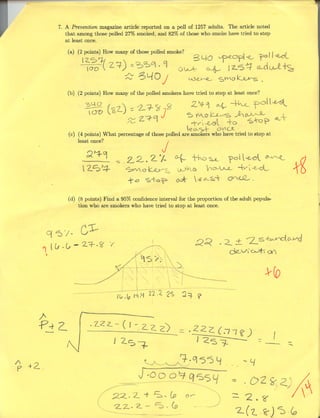 7. A Preventive magazine article reported on a poll of 1257 adults. The article noted
that among those polled 27% smoked, and 82% of those who smoke have tried to stop
at least once.
(a) (2 points) How many of those polled smoke?
1257/100 (27) = 339.9
≈ 340
340 people polled
out of 1257 adults
were smokers.
(b) (2 points) How many of the polled smokers have tried to stop at least once?
340/100 (82) = 278.8
≈ 279
279 of the polled
smokers have
tried to stop at
least once
(c) (4 points) What percentage of those polled are smokers who have tried to stop at
least once?
279/1257 = 22.2% of those polled are
smokers who have tried
to stop at least once.
+8
(d) (8 points) Find a 95% confidence interval for the proportion of the adult popula-
tion who are smokers who have tried to stop at least once.
95% CI
16.6 - 27.8 %
22.2 ± 2 standard
deviation
+6
95%
16.6 19.4 22.2 25 27.8
p̂ ± 2 √ .222 (1 - .222) / 1257 = .222 (.778) / 1257
p̂ ± 2
√.00079554
= .0282
22.2 + 5.6 or
22.2 - 5.6
= 2.8
2(2.8) 5.6